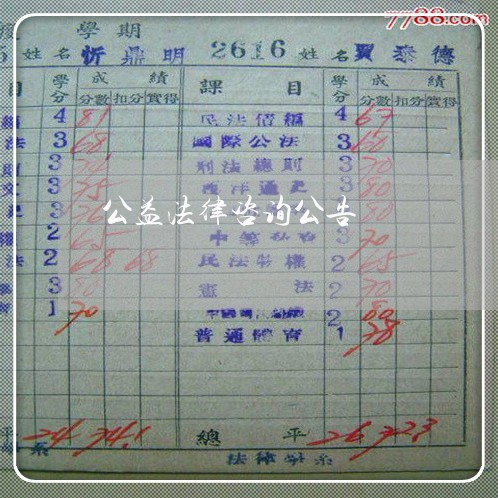 7788.com
學期
5 姓名 忻鼎明 2616 姓名 賈泰德
目 學分 成績 課目 學分 成績
分數 扣分 實得 分數 扣分 實得
4 81 民法債編 4 67
法 3 68 國際公法 3 60
3 刑法總則 3 70
3 75 西洋通史 3 80
3 80
公益法律咨询公告
2 65 3 70
法 2 68 68 民法物權 2 65
3 80 憲法 2 70
1 70 2 80
普通體育 1 78
平 24 74.1 總平 26 72.3
系 法律學系